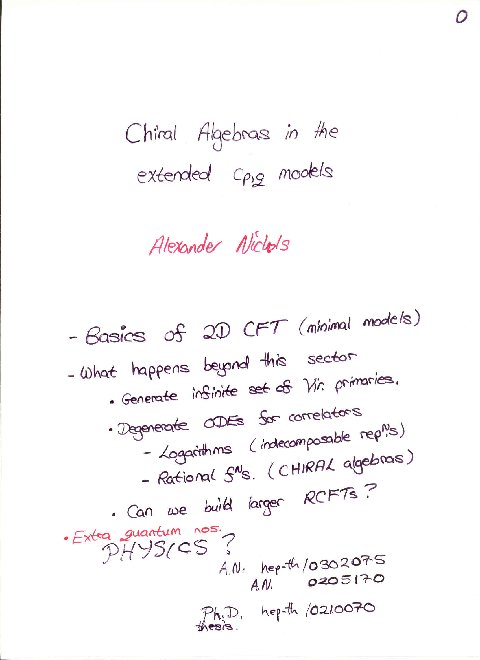 0
Chiral Algebras in the
extended Cp,q models
Alexander Nichols
- Basics of 2D CFT (minimal models)
- What happens beyond this sector
• Generate infinite set of Vir. primaries.
• Degenerate ODEs for correlators
- Logarithms (indecomposable repNs)
- Rational fNs. (CHIRAL algebras)
• Can we build larger RCFTs?
• Extra quantum nos.
PHYSICS?
A.N. hep-th/0302075
A.N. 0205170
Ph.D. hep-th/0210070
thesis.